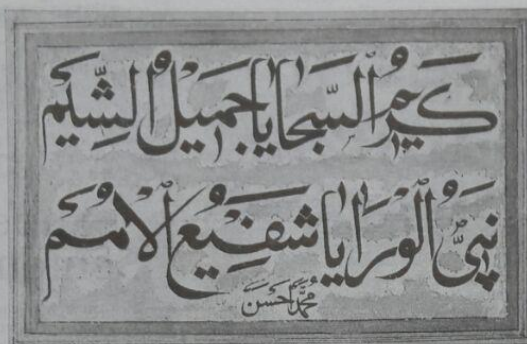 كَرِيمُ السَّجَايَا جَمِيلُ الشِّيَم
نَبِيُّ الْوَرَايَا شَفِيعُ الْأُمَم
مُحَمَّد حَسَن